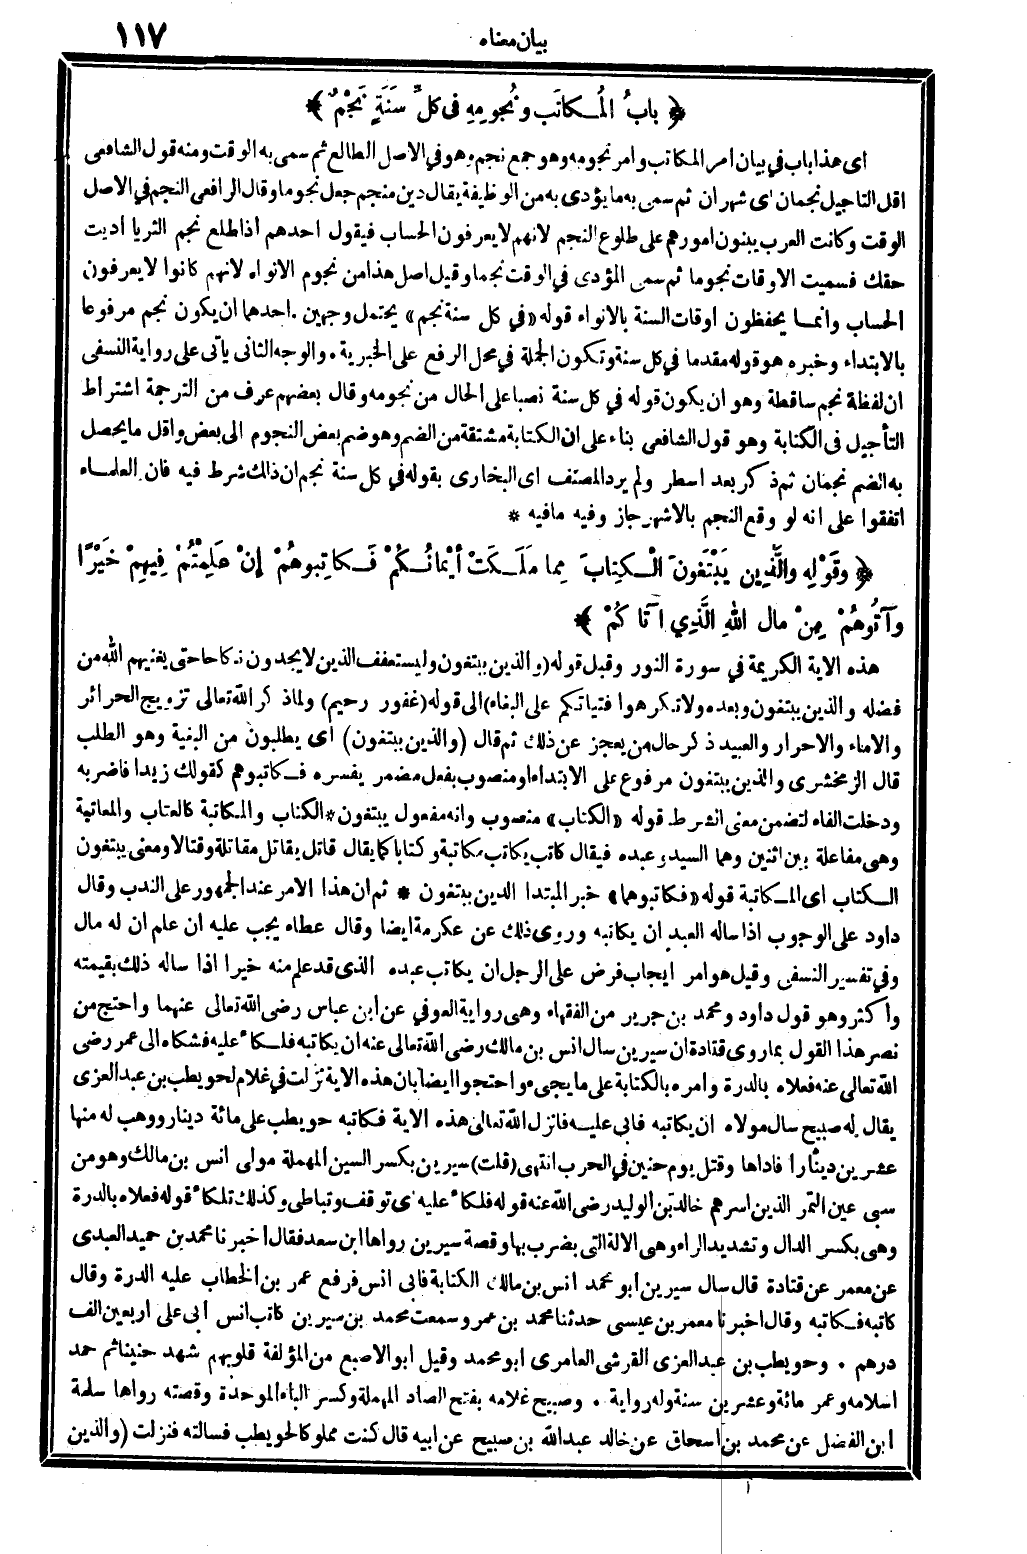 بيان معناه ١١٧
﴿ بابُ المُكاتَبِ ونُجُومِهِ فى كلِّ سَنَةٍ نَجْمٌ ﴾
اى هذا باب في بيان امر المكاتب وامر نجومه وهو جمع نجم وهو في الاصل الطالع ثم سمى به الوقت ومنه قول الشافعى
اقل التاجيل نجمان اى شهران ثم سمى به ما يؤدى به من الوظيفة يقال دين منجم جعل نجوما وقال الرافعى النجم في الاصل
الوقت وكانت العرب يبنون امورهم على طلوع النجم لانهم لا يعرفون الحساب فيقول احدهم اذا طلع نجم الثريا أديت
حقك فسميت الاوقات نجوما ثم سمى المؤدى في الوقت نجما وقيل اصل هذا من نجوم الانواء لانهم كانوا لا يعرفون
الحساب وانما يحفظون اوقات السنة بالانواء قوله «في كل سنة نجم» يحتمل وجهين . احدهما ان يكون نجم مرفوعا
بالابتداء وخبره هو قوله مقدما في كل سنة وتكون الجملة في محل الرفع على الخبرية . والوجه الثانى ياتى على رواية النسفى
ان لفظة نجم ساقطة وهو ان يكون قوله في كل سنة نصبا على الحال من نجومه وقال بعضهم عرف من الترجمة اشتراط
التأجيل فى الكتابة وهو قول الشافعى بناء على ان الكتابة مشتقة من الضم وهو ضم بعض النجوم الى بعض واقل ما يحصل
به الضم نجمان ثم ذكر بعد اسطر ولم يرد المصنف اى البخارى بقوله في كل سنة نجم ان ذلك شرط فيه فان العلماء
اتفقوا على انه لو وقع النجم بالاشهر جاز وفيه مافيه *
﴿ وقَوْلِهِ والَّذِينَ يَبْتَغُونَ الْكِتابَ مِما مَلَكَتْ أيْمانُكُمْ فَكاتِبوهُمْ إنْ عَلِمْتُمْ فِيهِمْ خَيْرًا
وَآتُوهُمْ مِنْ مال اللهِ الَّذِي آتَاكُمْ ﴾
هذه الاية الكريمة في سورة النور وقبل قوله (والذين يبتغون وليستعفف الذين لا يجدون نكاحا حتى يغنيهم الله من
فضله والذين يبتغون وبعده ولا تكرهوا فتياتكم على البغاء) الى قوله (غفور رحيم) ولما ذكر الله تعالى تزويج الحرائر
والاماء والاحرار والعبيد ذكر حال من يعجز عن ذلك ثم قال (والذين يبتغون) اى يطلبون من البغية وهو الطلب
قال الزمخشرى والذين يبتغون مرفوع على الابتداء او منصوب بفعل مضمر يفسره فكاتبوهم كقولك زيدا فاضربه
ودخلت الفاء لتضمن معنى الشرط قوله «الكتاب» منصوب وانه مفعول يبتغون * الكتاب والمكاتبة كالعتاب والمعاتبة
وهى مفاعلة بين اثنين وهما السيد وعبده فيقال كاتب يكاتب مكاتبة وكتابا كما يقال قاتل يقاتل مقاتلة وقتالا ومعنى يبتغون
الكتاب اى المكاتبة قوله «فكاتبوهما» خبر المبتدا الدين يبتغون * ثم ان هذا الامر عند الجمهور على الندب وقال
داود على الوجوب اذا ساله العبد ان يكاتبه وروى ذلك عن عكرمة ايضا وقال عطاء يجب عليه ان علم ان له مال
وفي تفسير النسفى وقيل هو امر ايجاب فرض على الرجل ان يكاتب عبده الذى قد علم منه خيرا اذا ساله ذلك بقيمته
وأكثر وهو قول داود ومحمد بن جرير من الفقهاء وهى رواية العوفي عن ابن عباس رضى الله تعالى عنهما واحتج من
نصر هذا القول بما روى قتادة ان سيرين سال انس بن مالك رضى الله تعالى عنه ان يكاتبه فلكأ عليه فشكاه الى عمر رضى
الله تعالى عنه فعلاه بالدرة وامره بالكتابة على ما يجىء واحتجوا ايضا بان هذه الاية نزلت في غلام لحويطب بن عبد العزى
يقال له صبيح سال مولاه ان يكاتبه فابى عليه فانزل الله تعالى هذه الاية فكاتبه حويطب على مائة دينار ووهب له منها
عشرين دينارا فاداها وقتل يوم حنين في الحرب انتهى (قلت) سيرين بكسر السين المهملة مولى انس بن مالك وهو من
سبى عين التمر الذين اسرهم خالد بن الوليد رضى الله عنه قوله فلكأ عليه اى توقف وتباطى وكذلك تلكأ قوله فعلاه بالدرة
وهى بكسر الدال وتشديد الراء وهى الالة التى يضرب بها وقصة سيرين رواها ابن سعد فقال اخبرنا محمد بن حميد العبدى
عن معمر عن قتادة قال سال سيرين أبو محمد انس بن مالك الكتابة فابى انس فرفع عمر بن الخطاب عليه الدرة وقال
كاتبه فكاتبه وقال اخبرنا معمر بن عيسى حدثنا محمد بن عمرو سمعت محمد بن سيرين كاتب انس ابى على اربعين الف
درهم . وحويطب بن عبد العزى القرشى العامرى ابو محمد وقيل ابو الاصبع من المؤلفة قلوبهم شهد حنينا ثم حمد
اسلامه وعمر مائة وعشرين سنة وله رواية . وصبيح غلامه بفتح الصاد المهملة وكسر الباء الموحدة وقصته رواها سلمة
ابن الفضل عن محمد بن اسحاق عن خالد عبد الله بن صبيح عن ابيه قال كنت مملوكا لحويطب فسالته فنزلت (والذين